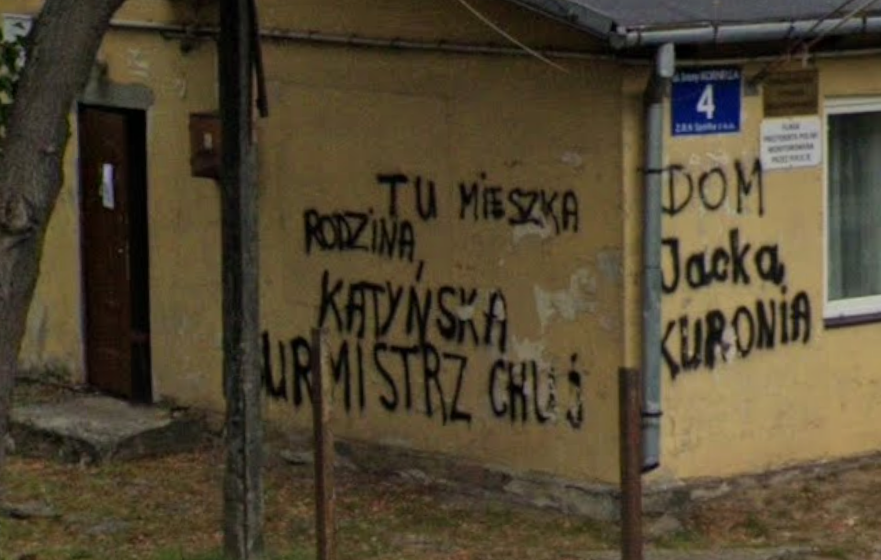 TU MIESZKA
RODZINA
KATYŃSKA
URMISTRZ CHUJ
4
DOM
Jacka
KURONIA